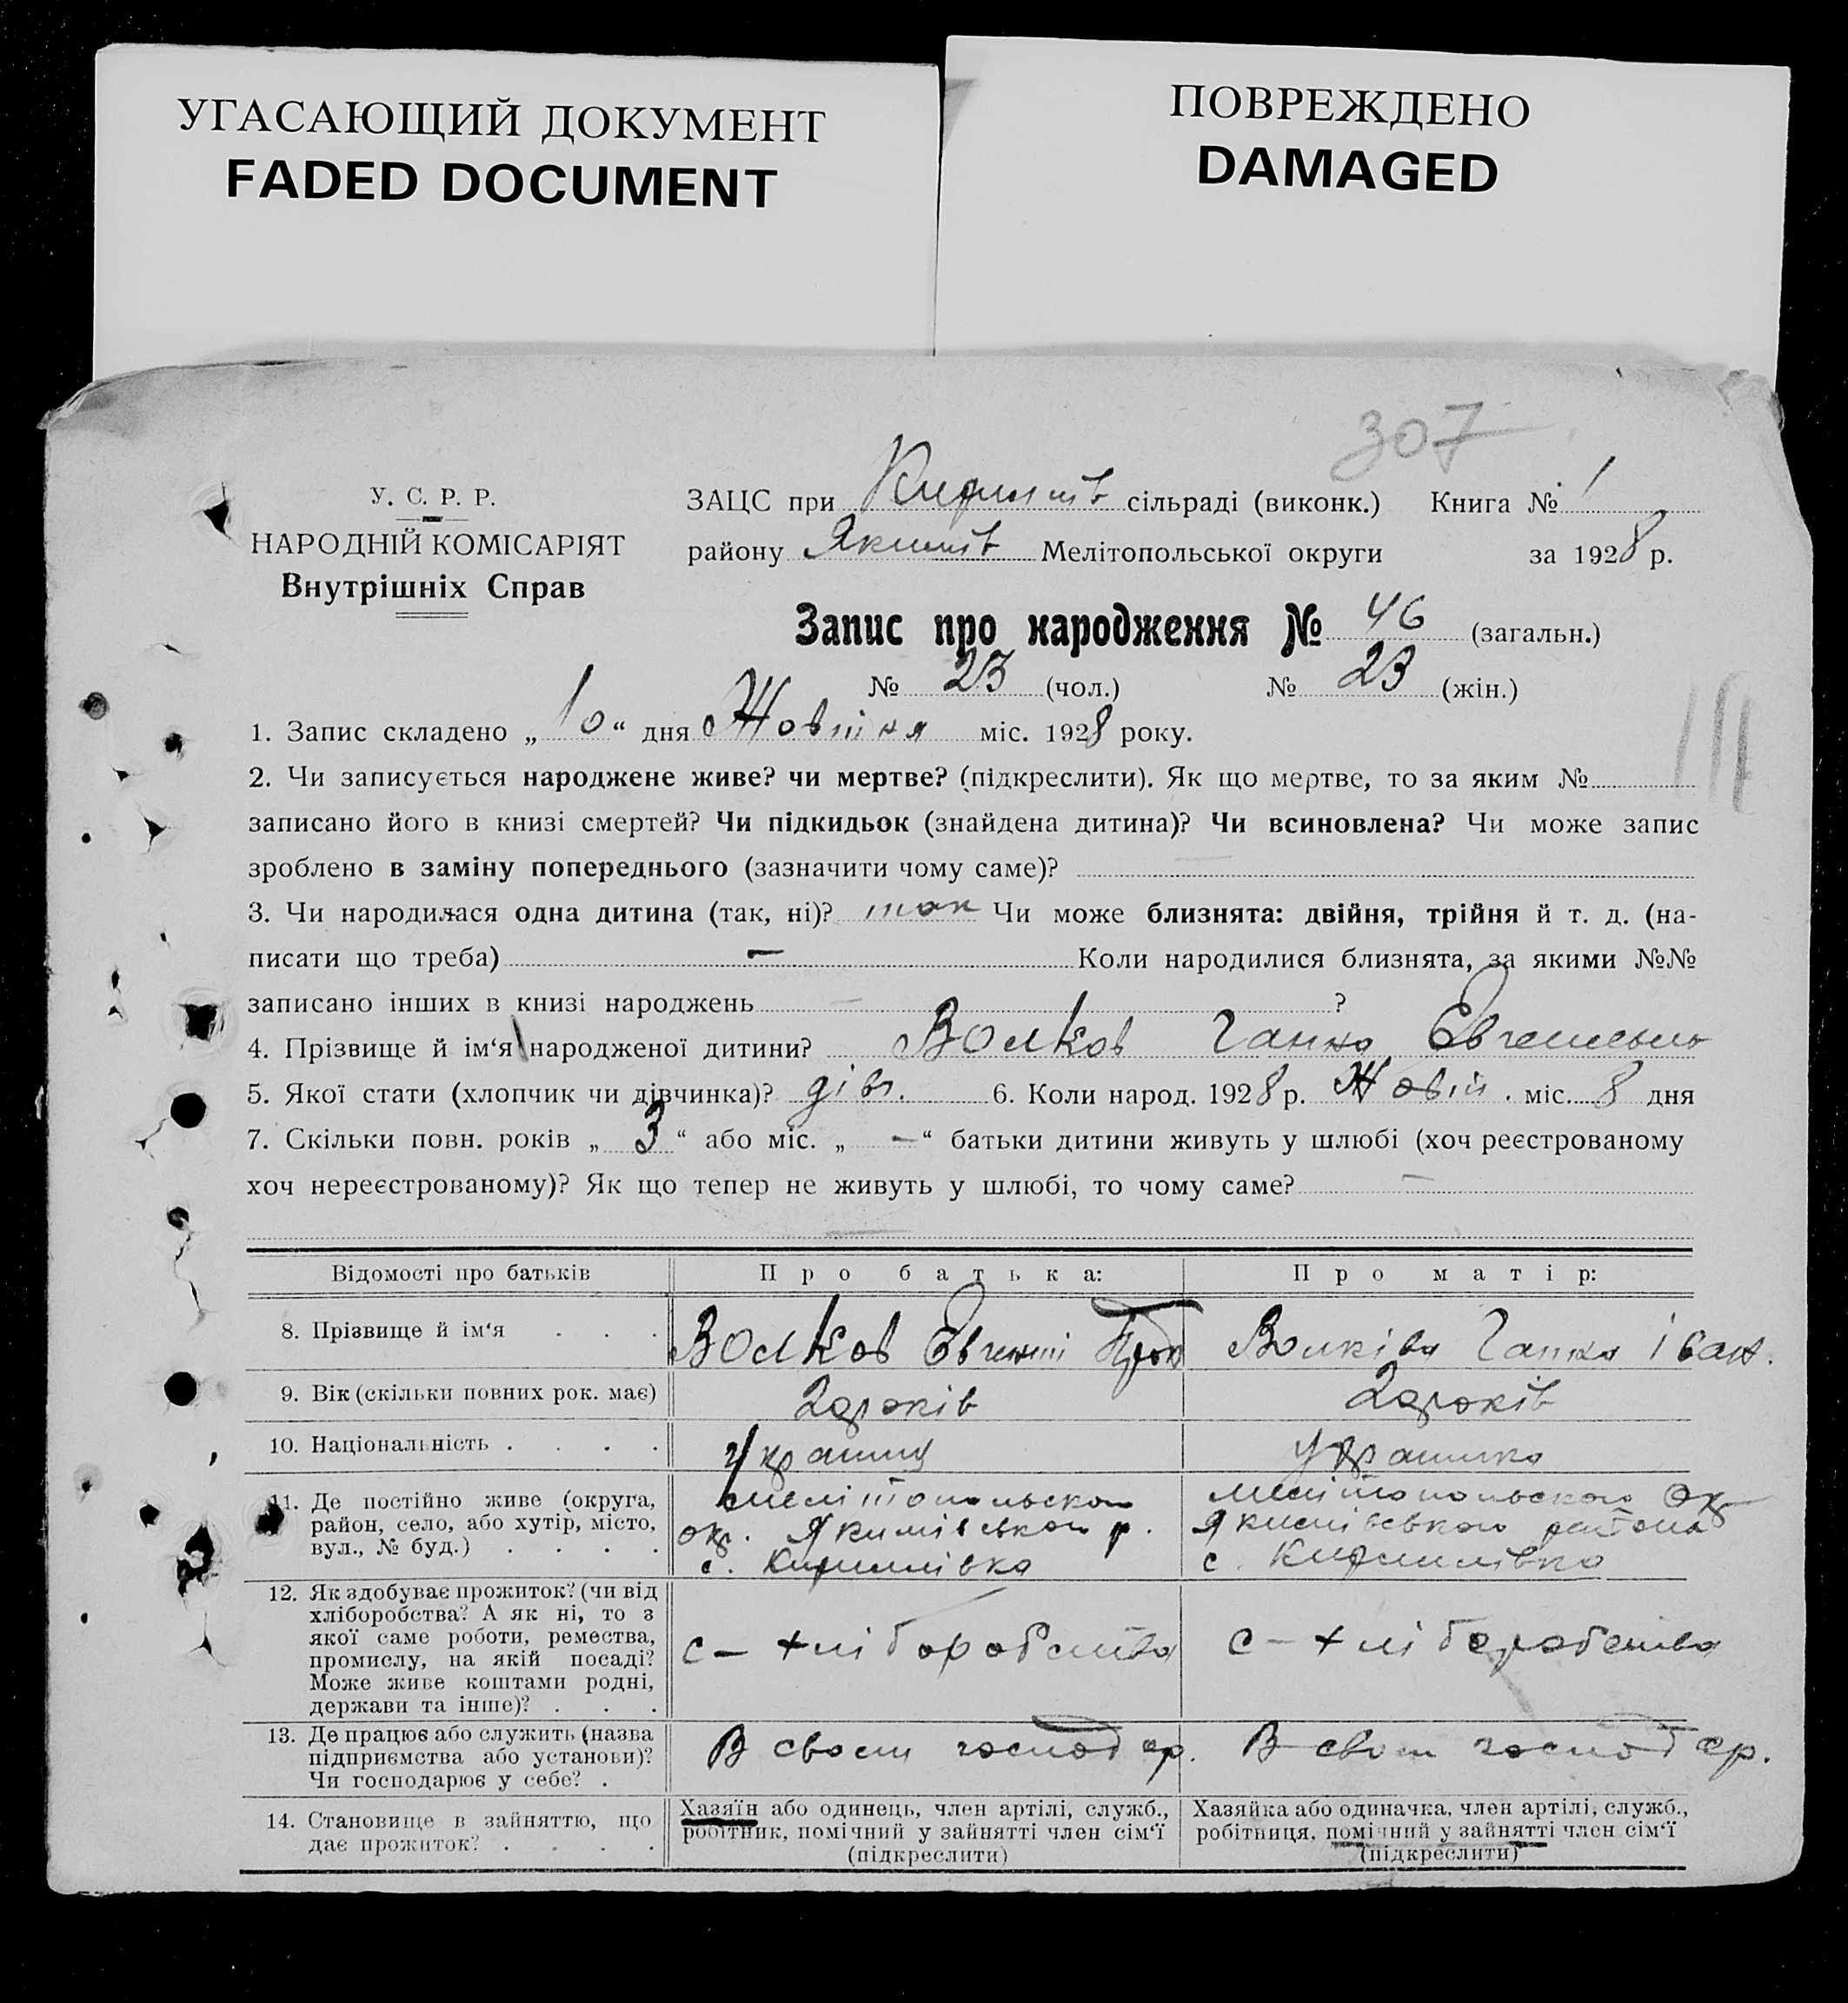 УГАСАЮЩИЙ ДОКУМЕНТ
FADED DOCUMENT
ПОВРЕЖДЕНО
DAMAGED
307
У. С. Р. Р.
НАРОДНІЙ КОМІСАРІЯТ
Внутрішніх Справ
ЗАЦС при Кирилів сільраді (виконк.) Книга № 1
району Якимів Мелітопольської округи за 1928 р.
Запис про народження № 46 (загальн.)
№ 23 (чол.) № 23 (жін.)
1. Запис складено „ 10 “ дня Жовтня міс. 1928 року.
2. Чи записується народжене живе? чи мертве? (підкреслити). Як що мертве, то за яким №
записано його в книзі смертей? Чи підкидьок (знайдена дитина)? Чи всиновлена? Чи може запис
зроблено в заміну попереднього (зазначити чому саме)?
3. Чи народилася одна дитина (так, ні)? так Чи може близнята: двійня, трійня й т. д. (на-
писати що треба) — Коли народилися близнята, за якими №№
записано інших в книзі народжень — ?
4. Прізвище й ім‘я народженої дитини? Волков Ганна
5. Якої стати (хлопчик чи дівчинка)? дівч. 6. Коли народ. 1928 р. Жовт. міс. 8 дня
7. Скільки повн. років „ 3 “ або міс. „ — “ батьки дитини живуть у шлюбі (хоч реєстрованому
хоч нереєстрованому)? Як що тепер не живуть у шлюбі, то чому саме? —
Відомості про батьків Про батька: Про матір:
8. Прізвище й ім‘я Волков Євгеній Прок Волківа Ганна Іван.
9. Вік (скільки повних рок. має) років років
10. Національність українц українка
11. Де постійно живе (округа, район, село, або хутір, місто, вул., № буд.)
Мелітопольскої
окр. Якимівської р.
с. Кирилівка
Мелітопольскої Окр
Якимівської района
с. Кирилівка
12. Як здобуває прожиток? (чи від
хліборобства? А як ні, то з
якої саме роботи, ремества,
промислу, на якій посаді?
Може живе коштами родні,
держави та інше)?
с-хліборобства с-хліборобства
13. Де працює або служить (назва
підприємства або установи)?
Чи господарює у себе?
В своем господар. В своем господар.
14. Становище в зайняттю, що
дає прожиток?
Хазяїн або одинець, член артілі, служб.,
робітник, помічний у зайнятті член сім‘ї
(підкреслити)
Хазяйка або одиначка, член артілі, служб.,
робітниця, помічний у зайнятті член сім‘ї
(підкреслити)